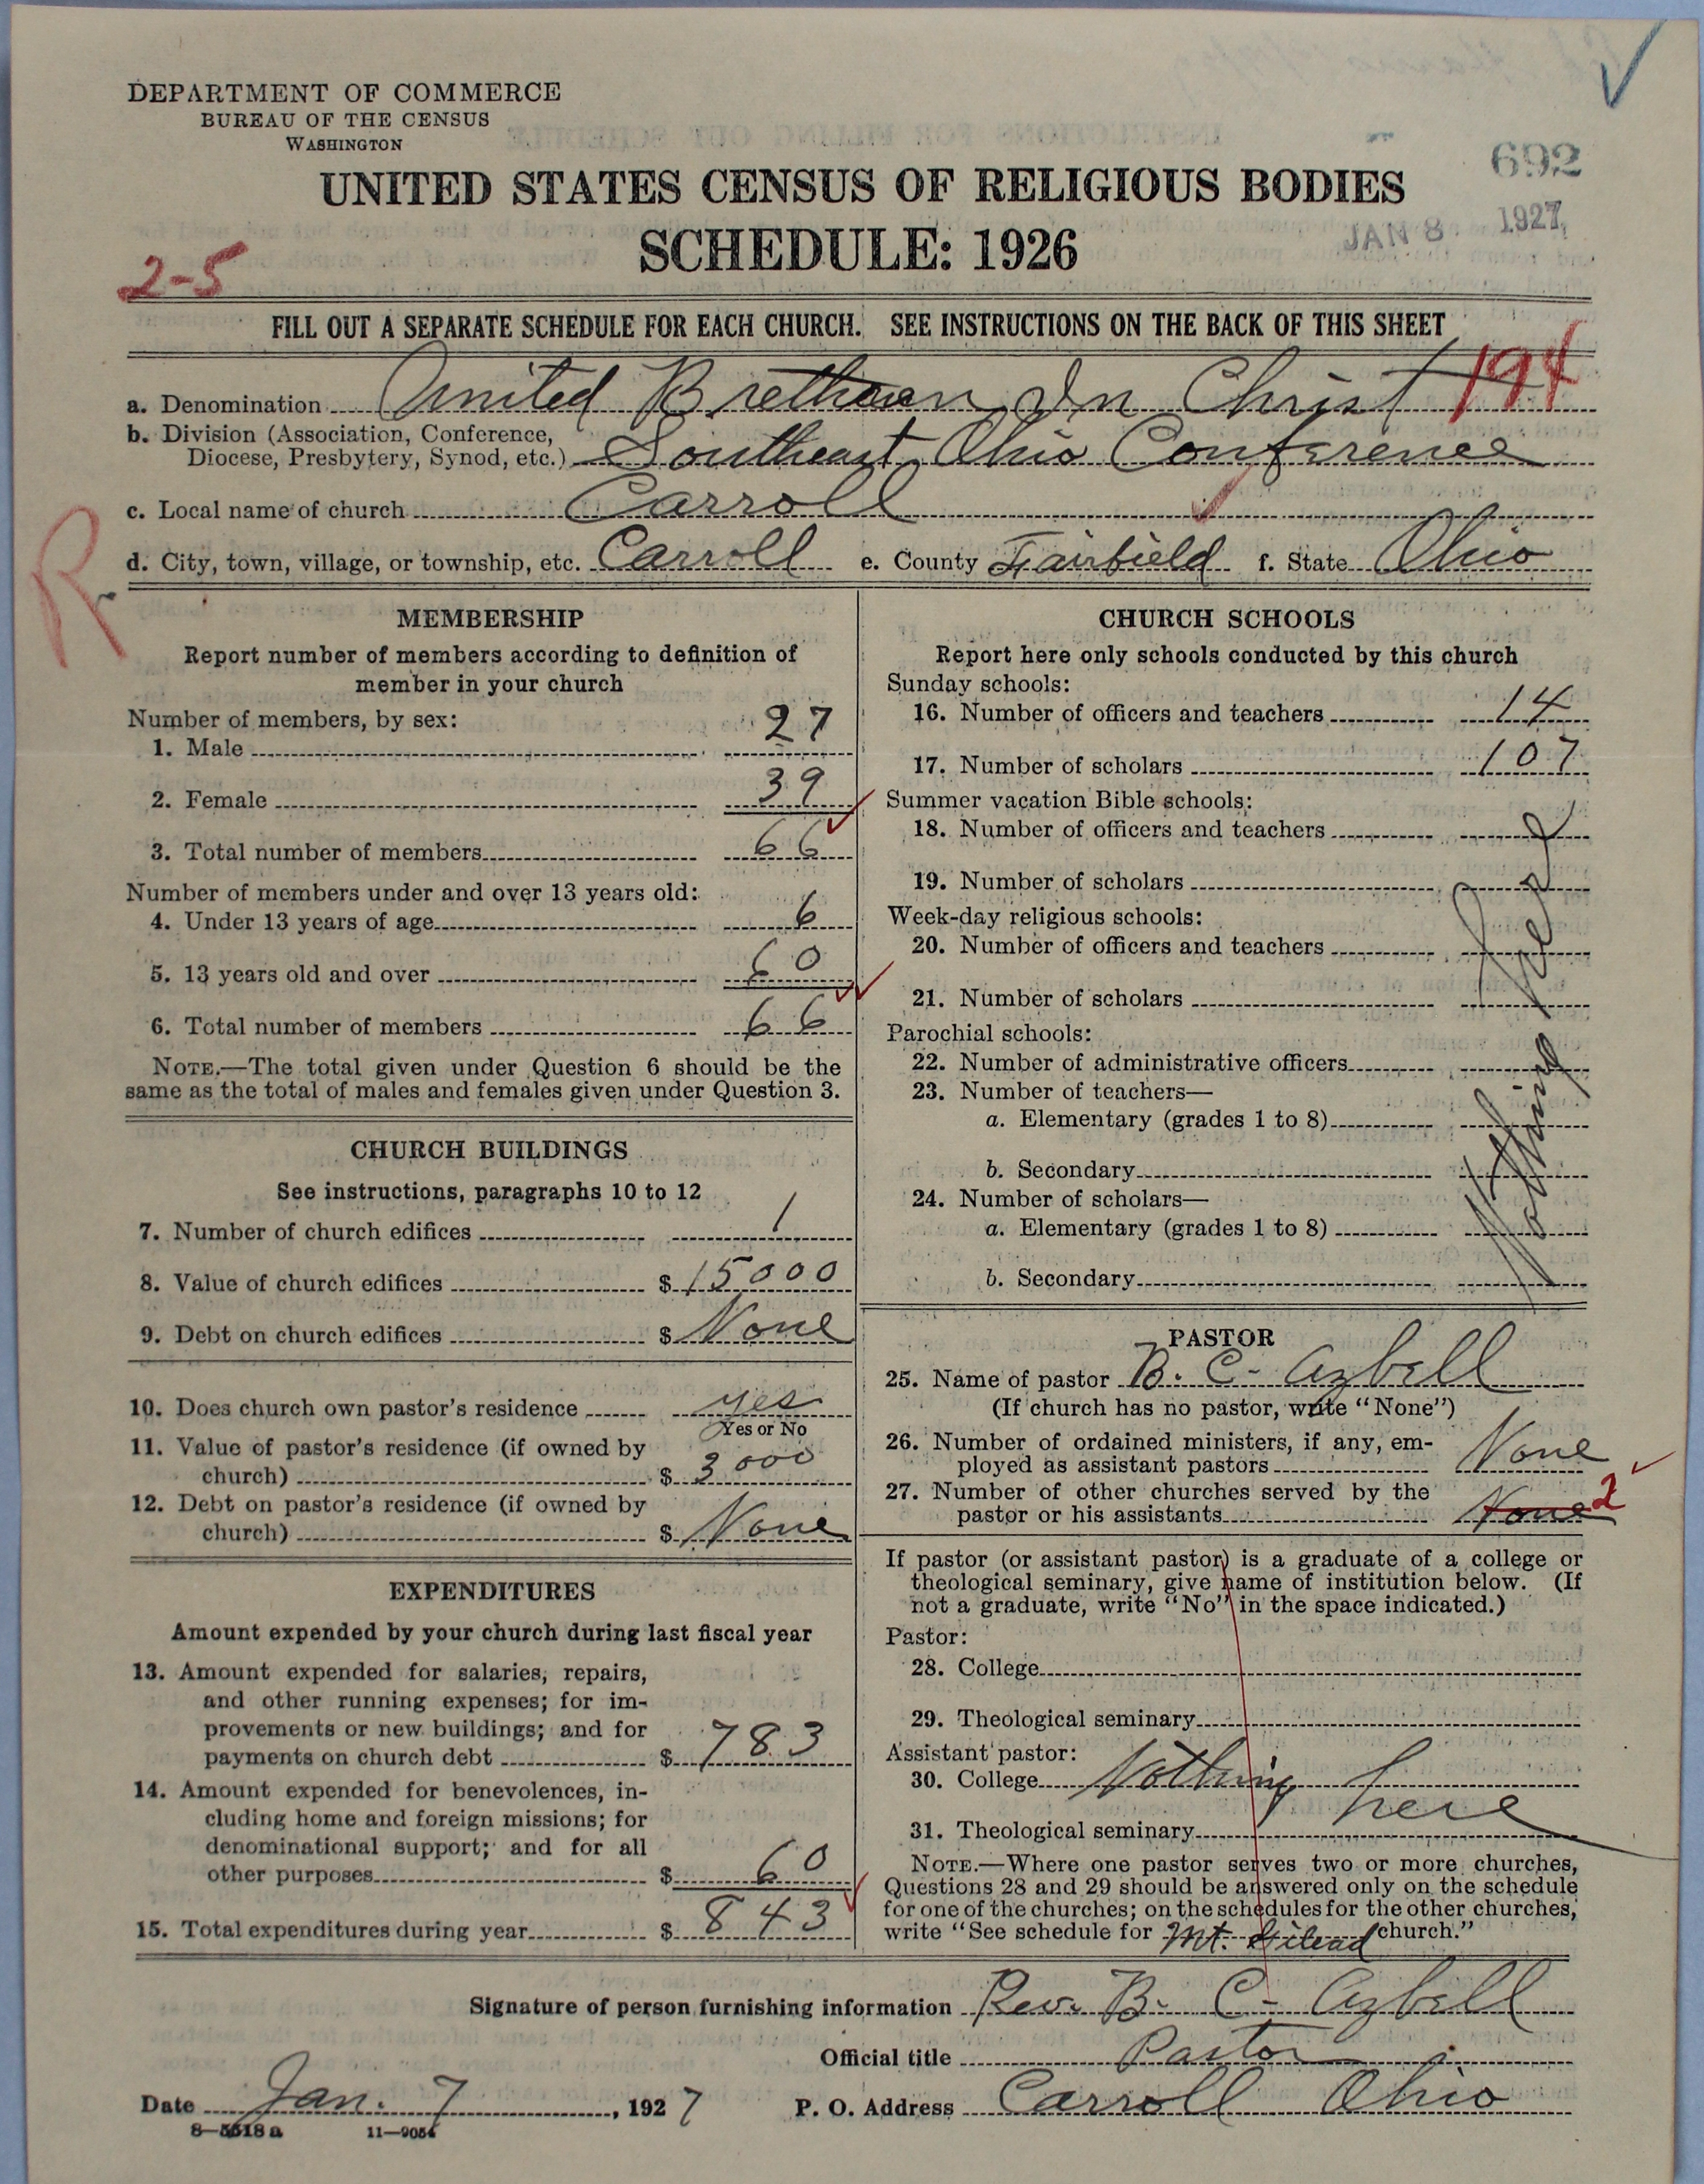 DEPARTMENT OF COMMERCE
BUREAU OF THE CENSUS
WASHINGTON
692
UNITED STATES CENSUS OF RELIGIOUS BODIES
JAN 8 1927
SCHEDULE: 1926
2-5
FILL OUT A SEPARATE SCHEDULE FOR EACH CHURCH. SEE INSTRUCTIONS ON THE BACK OF THIS SHEET
194
a. Denomination United Brethren In Christ
b. Division (Association, Conference,
Diocese, Presbytery, Synod, etc.) Southeast Ohio Conference
c. Local name of church Carroll
d. City, town, village, or township, etc. Carroll e. County Fairfield f. State Ohio
R
MEMBERSHIP
Report number of members according to definition of
member in your church
Number of members, by sex:
1. Male 27
2. Female 39
3. Total number of members 66
Number of members under and over 13 years old:
4. Under 13 years of age 6
5. 13 years old and over 60
6. Total number of members 66
NOTE.—The total given under Question 6 should be the
same as the total of males and females given under Question 3.
CHURCH BUILDINGS
See instructions, paragraphs 10 to 12
7. Number of church edifices 1
8. Value of church edifices $ 15000
9. Debt on church edifices $ None
10. Does church own pastor's residence yes
Yes or No
11. Value of pastor's residence (if owned by
church) $ 3000
12. Debt on pastor's residence (if owned by
church) $ None
EXPENDITURES
Amount expended by your church during last fiscal year
13. Amount expended for salaries, repairs,
and other running expenses; for im-
provements or new buildings; and for
payments on church debt $ 783
14. Amount expended for benevolences, in-
cluding home and foreign missions; for
denominational support; and for all
other purposes $ 60
15. Total expenditures during year $ 843
CHURCH SCHOOLS
Report here only schools conducted by this church
Sunday schools:
16. Number of officers and teachers 14
17. Number of scholars 107
Summer vacation Bible schools:
18. Number of officers and teachers
19. Number of scholars
Week-day religious schools:
20. Number of officers and teachers
21. Number of scholars
Parochial schools:
22. Number of administrative officers
23. Number of teachers—
a. Elementary (grades 1 to 8)
b. Secondary
24. Number of scholars—
a. Elementary (grades 1 to 8)
b. Secondary
Nothing here
PASTOR
25. Name of pastor B. C. Azbell
(If church has no pastor, write "None")
26. Number of ordained ministers, if any, em-
ployed as assistant pastors None
27. Number of other churches served by the
pastor or his assistants None 2
If pastor (or assistant pastor) is a graduate of a college or
theological seminary, give name of institution below. (If
not a graduate, write "No" in the space indicated.)
Pastor:
28. College
29. Theological seminary
Assistant pastor:
30. College Nothing here
31. Theological seminary
NOTE.—Where one pastor serves two or more churches,
Questions 28 and 29 should be answered only on the schedule
for one of the churches; on the schedules for the other churches,
write "See schedule for Mt. Gilead church."
Signature of person furnishing information Rev. B. C. Azbell
Official title Pastor
Date Jan. 7, 1927 P. O. Address Carroll Ohio
8—5518 a 11—9054